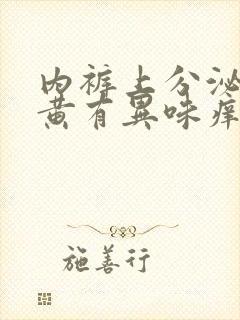 内裤上分泌
黄有异味痒
施善行